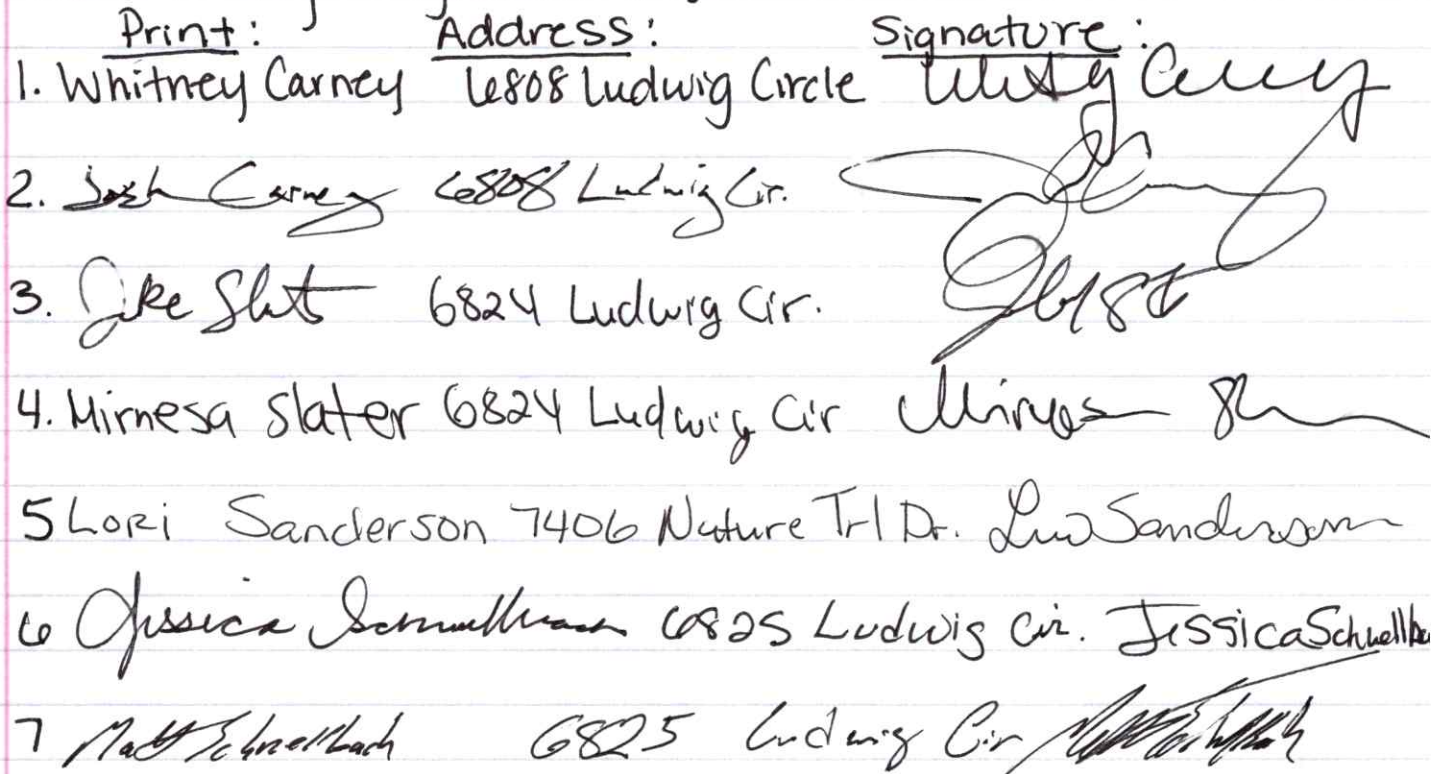 Print: Address: Signature:
1. Whitney Carney 6808 Ludwig Circle
2. Josh Carney 6808 Ludwig Cir.
3. Jake 6824 Ludwig Cir.
4. Mirnesa Slater 6824 Ludwig Cir
5 Lori Sanderson 7406 Nature Trl Dr. Lori Sanderson
6 Jessica 6825 Ludwig Cir. Jessica
7 Matt Schnellbach 6825 Ludwig Cir